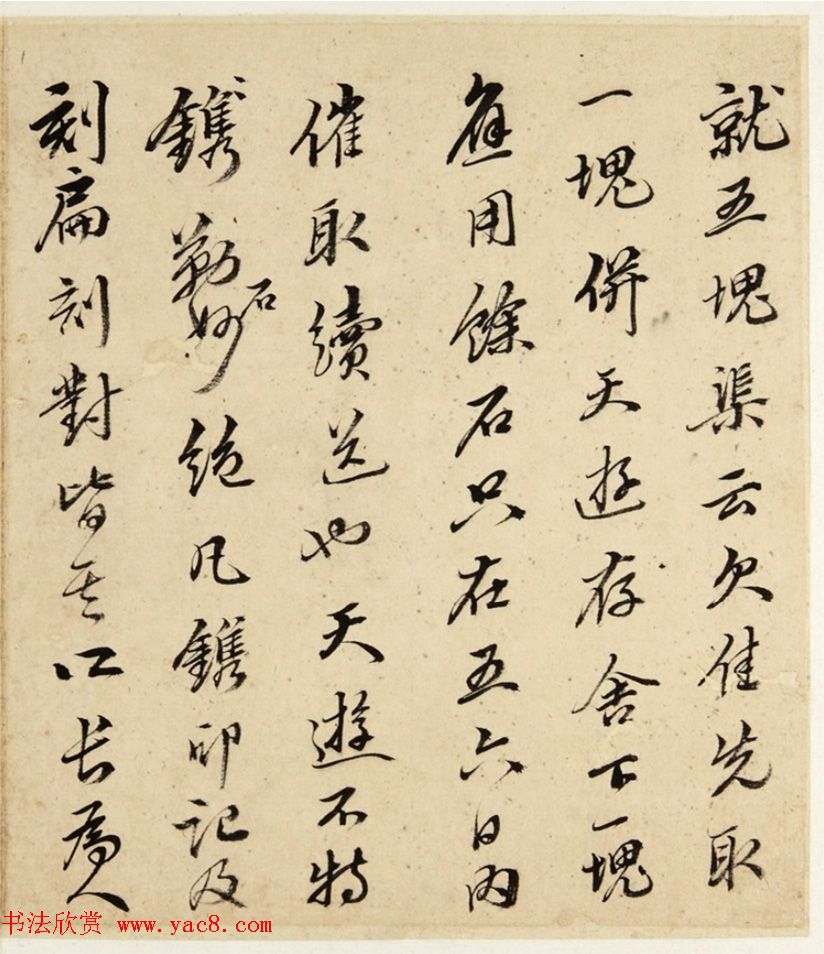 就五塊渠云欠佳先取
一塊併天遊存舍下一塊
應用餘石只在五六日内
催取續送也天遊不特
鐫勒石妙絶凡鐫印記及
刻扁刻對皆其所長為人
书法欣赏 www.yac8.com